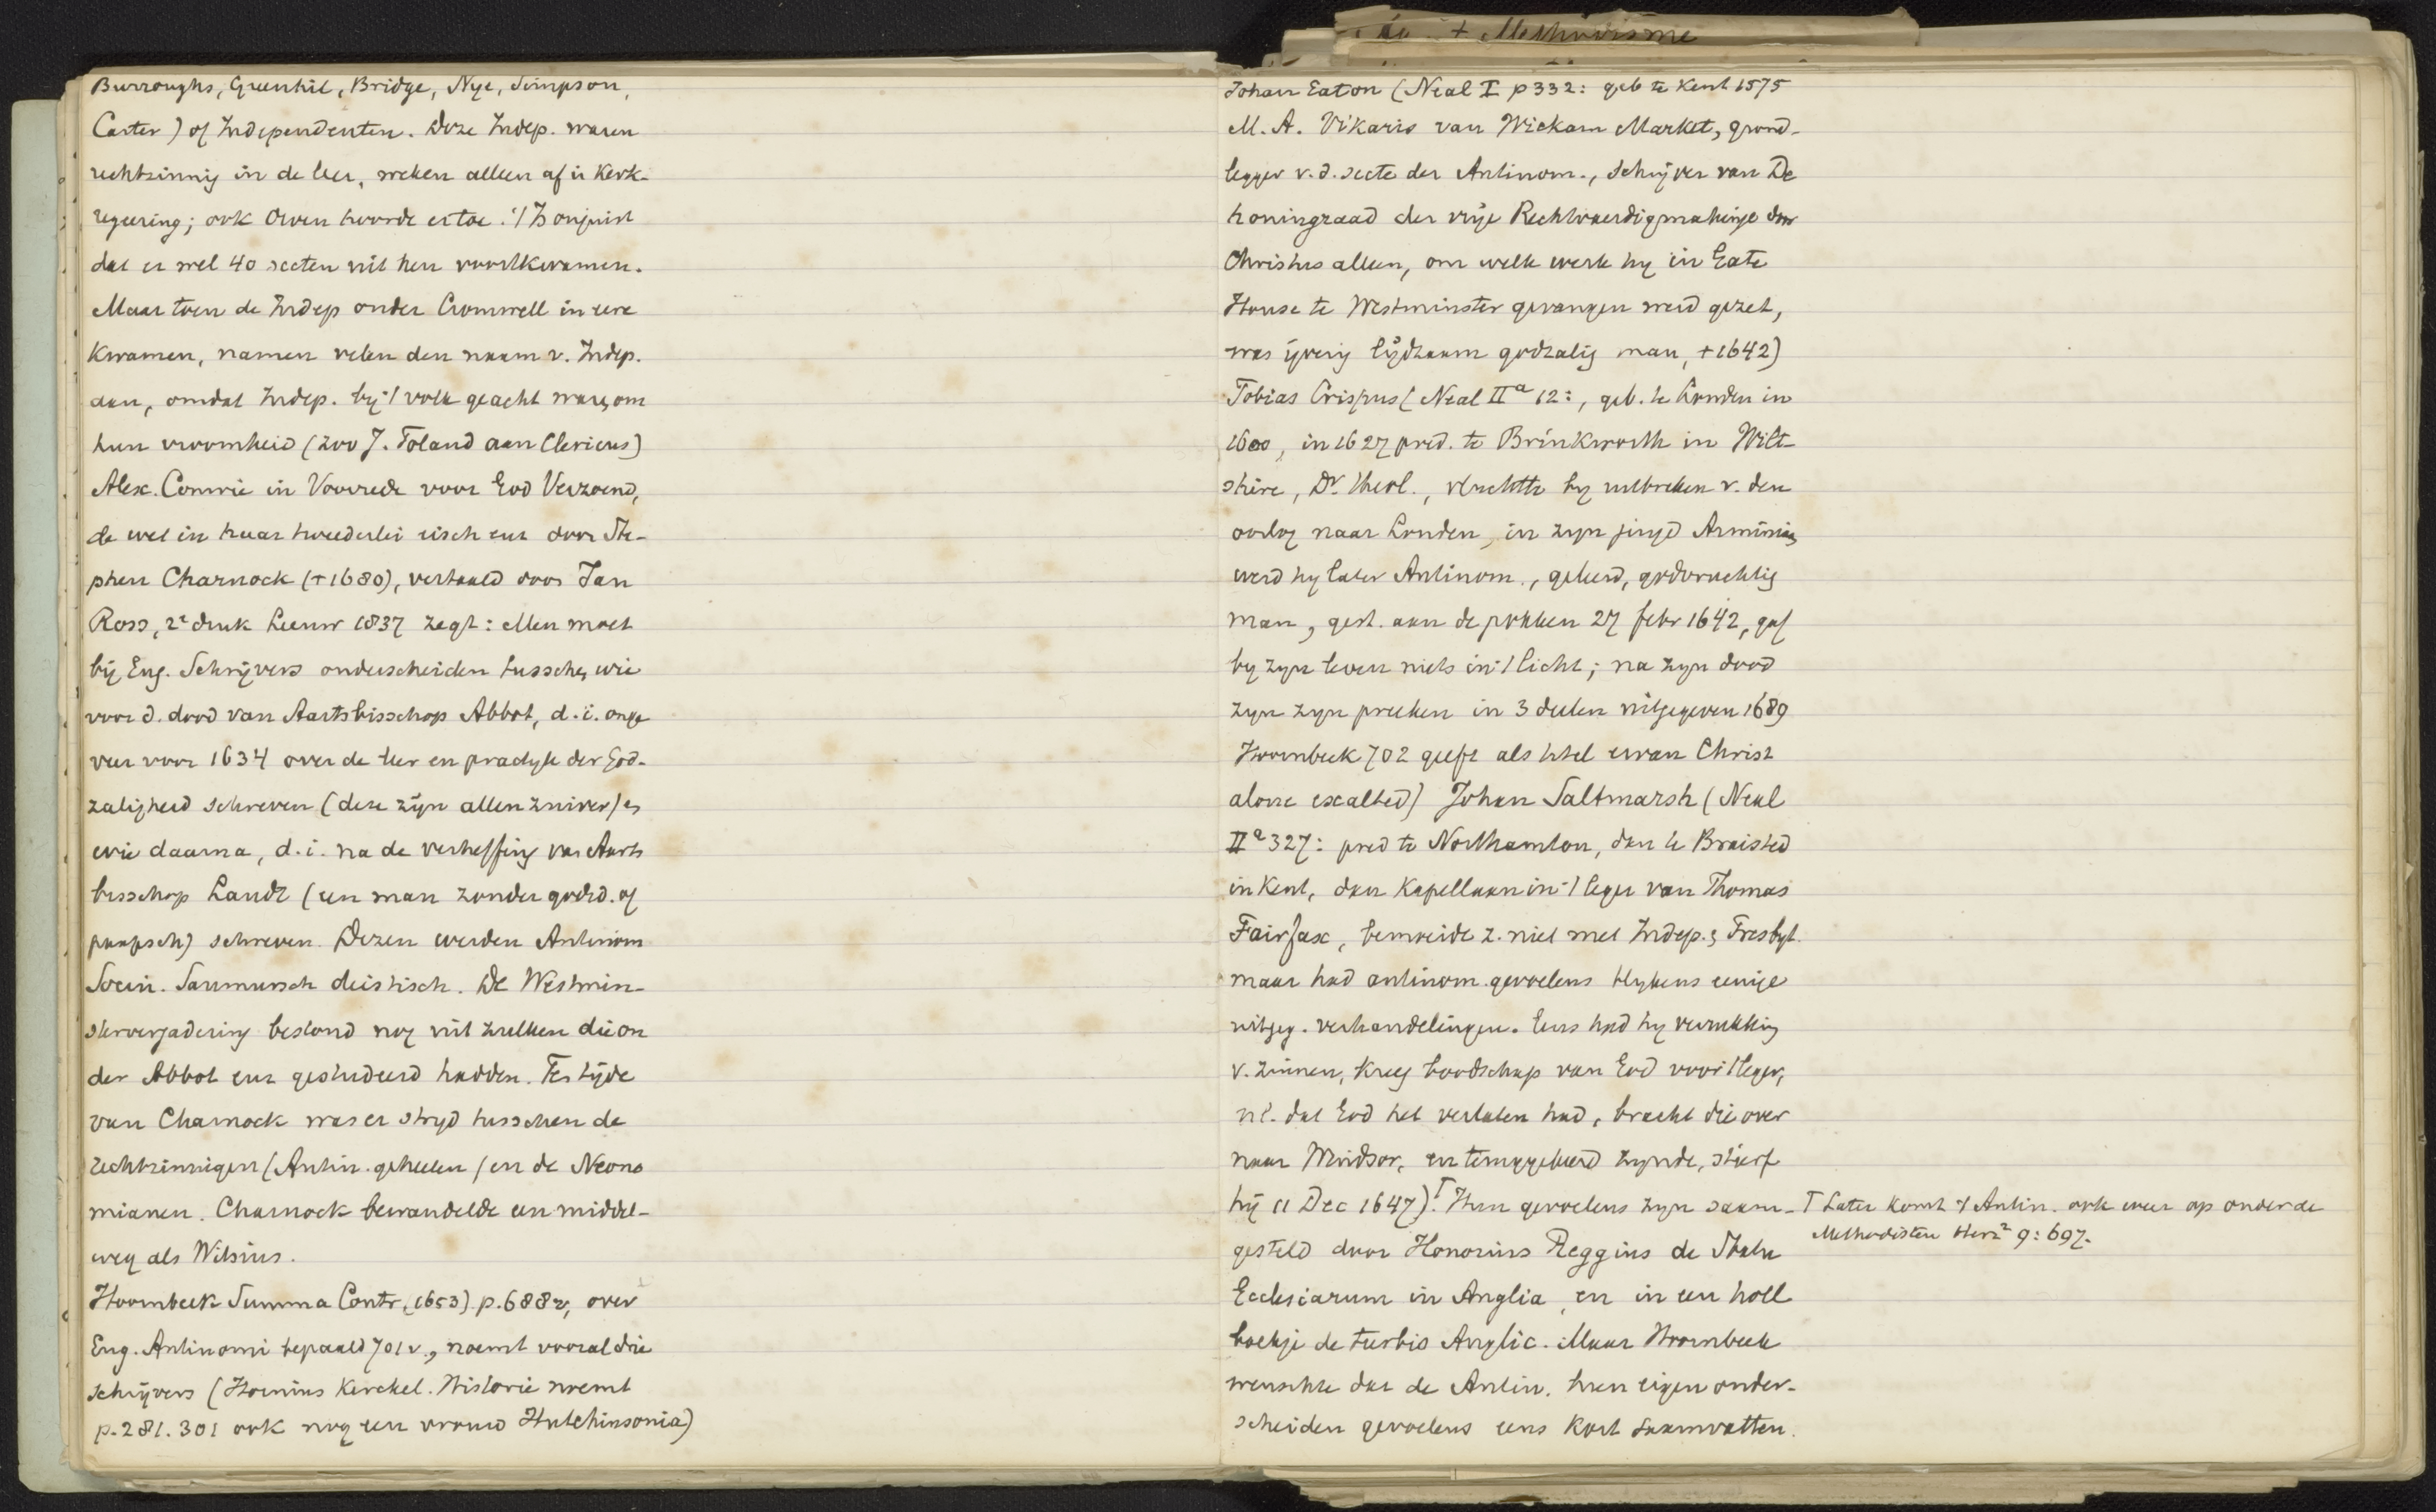 + Methodisme
Burroughs, Greenhil, Bridge, Nye, Simpson,
Carter) of Independenten. Deze Indep. waren
rechtzinnig in de leer, weken alleen af in Kerk-
regeering; ook Owen hoorde ertoe. 't Is onjuist
dat er wel 40 secten uit hen voortkwamen.
Maar toen de Indep onder Cromwell in eere
Kwamen, namen velen den naam v. Indep.
aan, omdat Indep. bij 't volk geacht waren om
hun vroomheid (zoo J. Toland aan Clericus)
Alex. Comrie in Voorrede voor God Verzoend,
de wet in haar tweederlei eisch enz door Ste-
phen Charnock (+1680), vertaald door Jan
Ross, 2e druk Leeuw 1837 zegt: Men moet
bij Eng. Schrijvers onderscheiden tusschen wie
voor d. dood van Aartsbisschop Abbot, d.i. onge
veer voor 1634 over de leer en practyk der God-
zaligheid schreven (deze zijn allen zuiver) en
wie daarna, d.i. na de verheffing van Aarts
bisschop Laudt (een man zonder godsd. of
paapsch) schreven. Dezen werden Antinom
Socin. Saumursch deistisch. De Westmin-
stervergadering bestond nog uit zulken die on
der Abbot enz gestudeerd hadden. Ten tijde
van Charnock was er strijd tusschen de
rechtzinnigen (Antin. geheeten) en de Neono
mianen. Charnock bewandelde een middel-
weg als Witsius.
Hoornbeek Summa Contr. (1653) p. 688v, over
Eng. Antinomi bepaald 701v., noemt vooral drie
schrijvers (Hornius Kerckel. Historie noemt
p. 281. 301 ook nog een vrouw Hutchinsonia)
Johan Eaton (Neal I p 332: geb te Kent 1575
M. A. Vikaris van Wickam Market, grond-
legger v. d. secte der Antinom., Schrijver van De
honingraad der vrije Rechtvaerdigmakinge door
Christus alleen, om welk werk hij in Gate
House te Westminster gevangen werd gezet,
was ijverig lijdzaam godzalig man, +1642)
Tobias Crispus (Neal II a 12:, geb. te Londen in
1600, in 1627 pred. te Brinkworth in Wilt-
shire, Dr. theol., vluchtte bij uitbreken v. den
oorlog naar Londen, in zijn jeugd Arminiaan
werd hij later Antinom., geleerd, godvruchtig
man, gest. aan de pokken 27 febr 1642, gaf
bij zijn leven niets in 't licht; na zijn dood
zijn zijn preeken in 3 deelen uitgegeven 1689
Hoornbeek 702 geeft als titel ervan Christ
alone exalted) Johan Saltmarsh (Neal
II a 327: pred te Northamton, dan te Braisted
in Kent, dan Kapellaan in 't leger van Thomas
Fairfax, bemoeide z. niet met Indep. & Presbyt.
maar had antinom. gevoelens blijkens eenige
uitgeg. verhandelingen. Eens had hij verrukking
v. zinnen, kreeg boodschap van God voor 't leger,
nl. dat God het verlaten had, bracht die over
naar Windsor, en teruggekeerd zijnde, stierf
hij 11 Dec 1647).⊤ Hun gevoelens zijn saam-
gesteld door Honorius Reggius de Statu
Ecclesiarum in Anglia, en in een holl
boekje de turbis Anglic. Maar Hoornbeek
wenschte dat de Antin. hun eigen onder-
scheiden gevoelens eens kort saamvatten.
⊤ Later komt 't Antin. ook weer op onder de
Methodisten Herz² 9: 697.